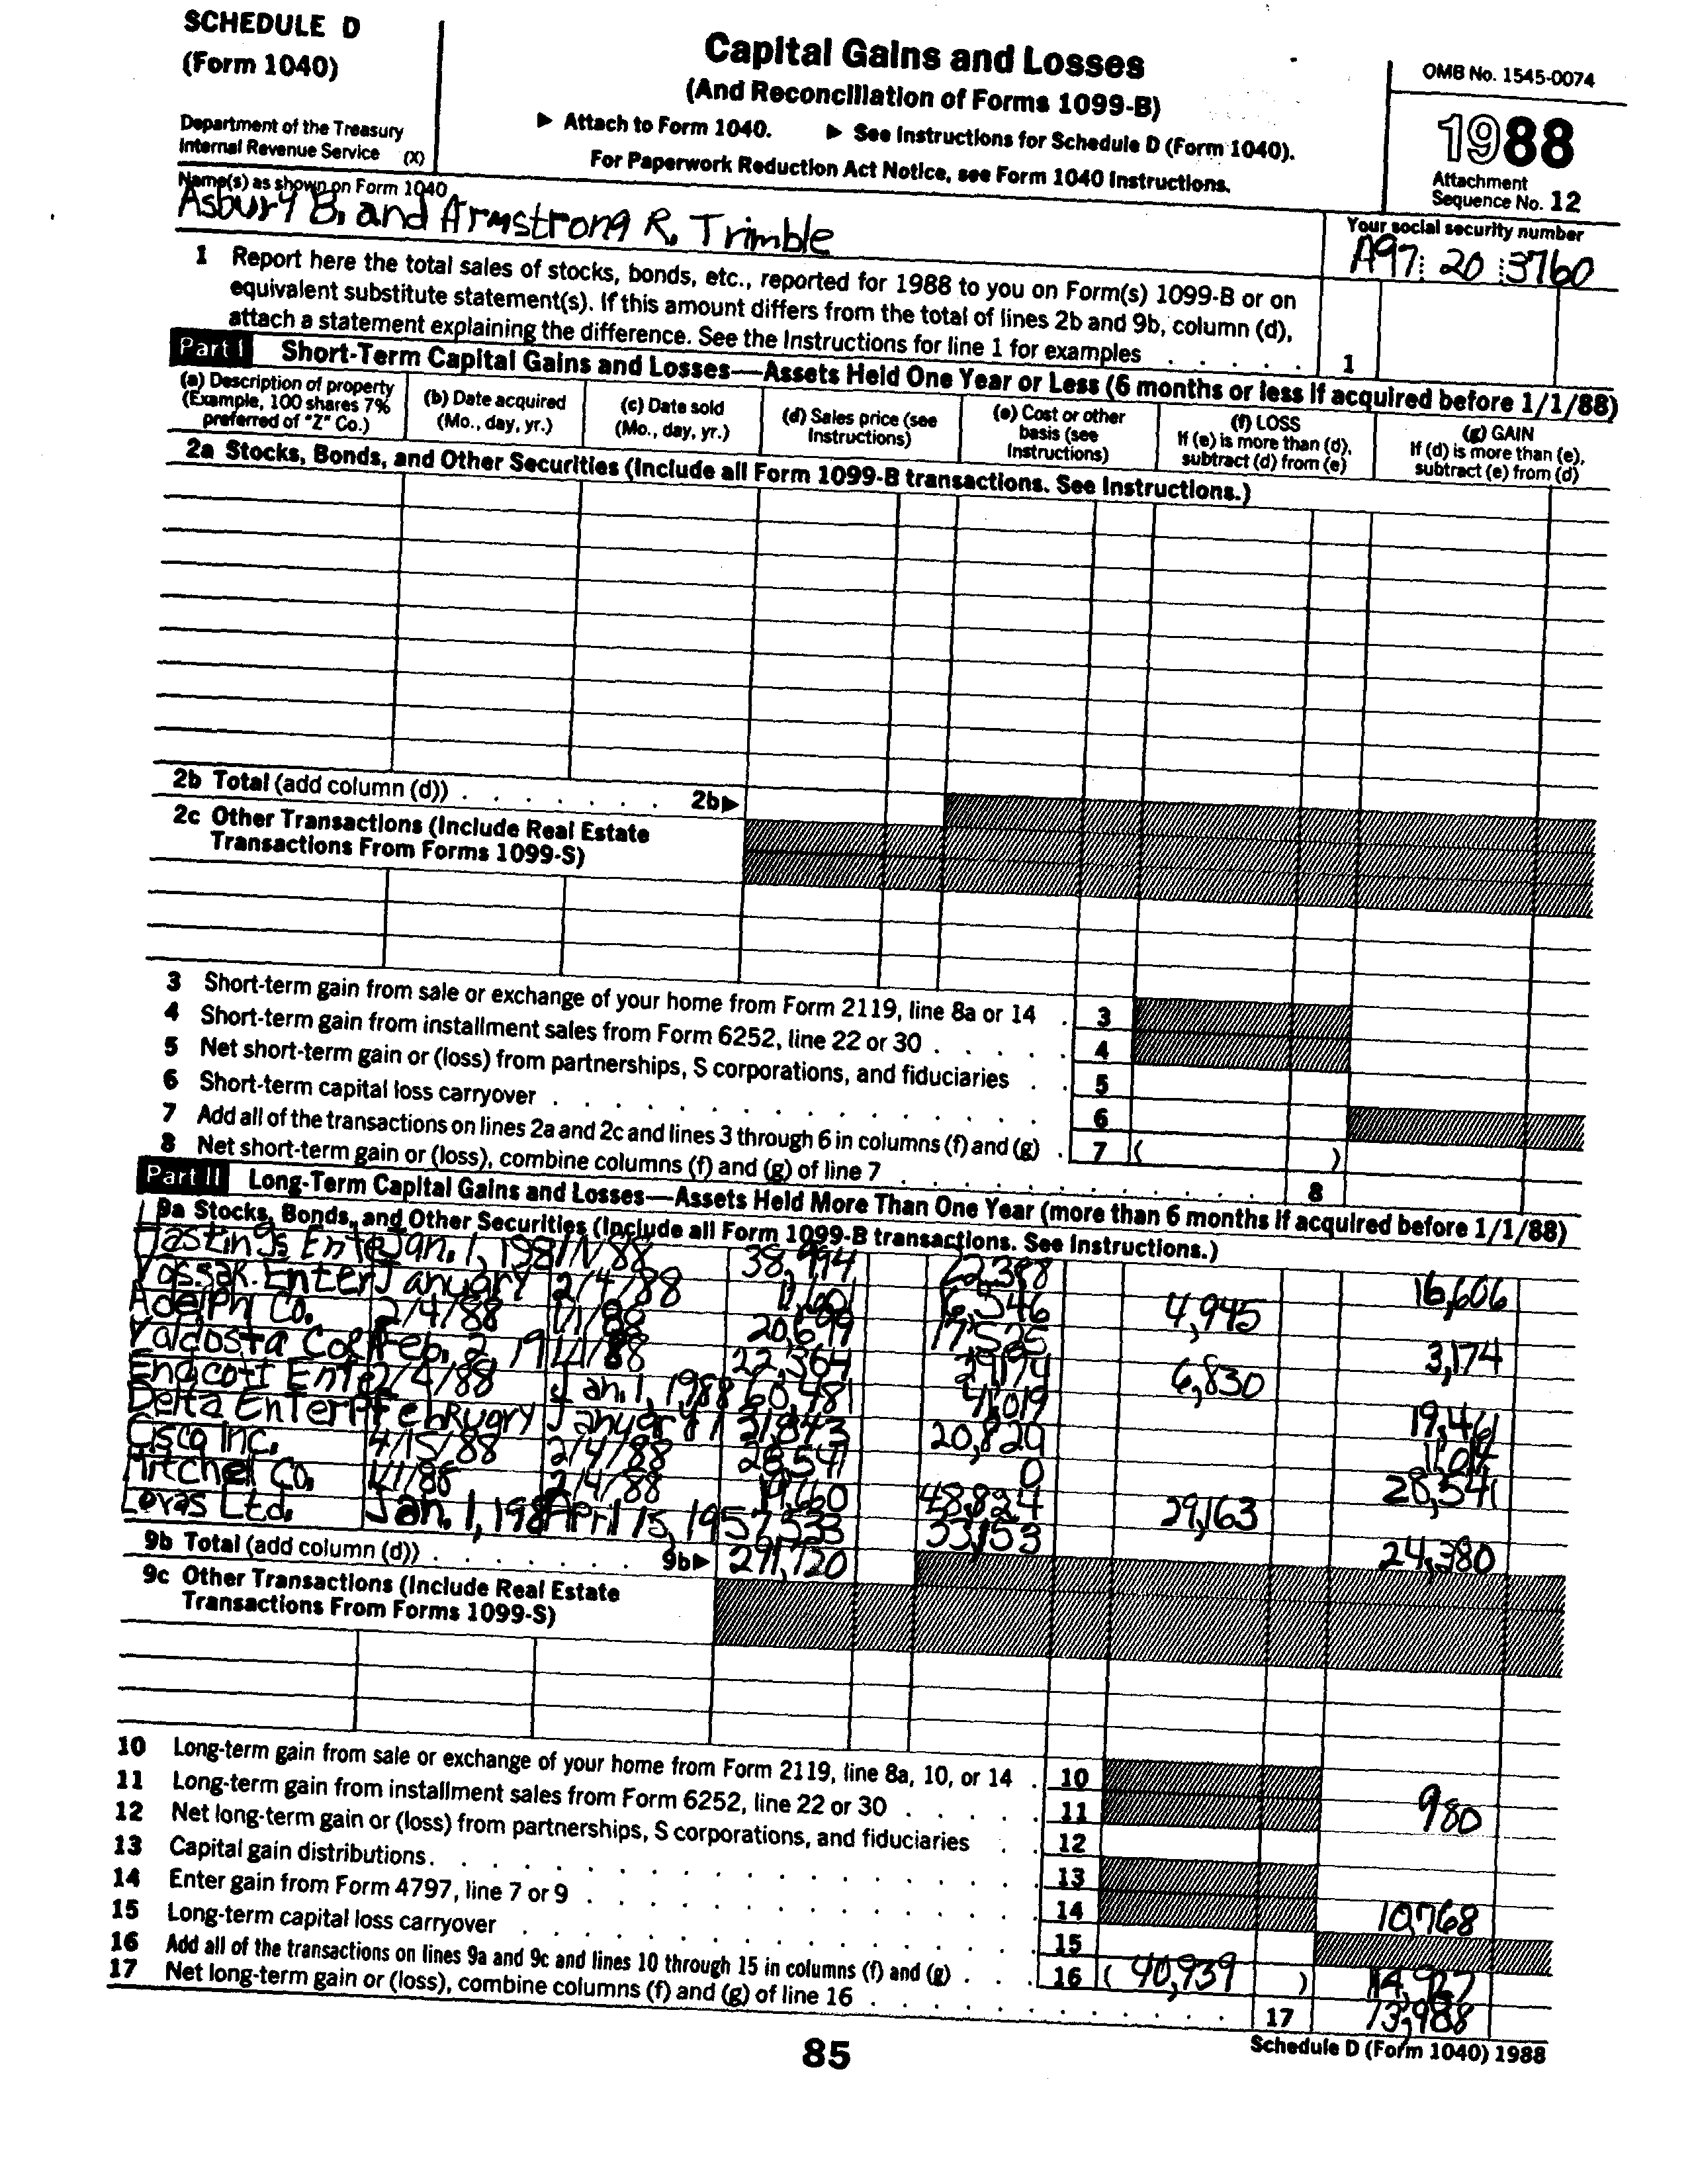 SCHEDULE D
(Form 1040)
Department of the Treasury
Internal Revenue Service (X)
Capital Gains and Losses
(And Reconciliation of Forms 1099-B)
▶ Attach to Form 1040. ▶ See Instructions for Schedule D (Form 1040).
For Paperwork Reduction Act Notice, see Form 1040 Instructions.
OMB No. 1545-0074
1988
Attachment
Sequence No. 12
Name(s) as shown on Form 1040
Asbury B. and Armstrong R. Trimble
Your social security number
A97 20 3760
1 Report here the total sales of stocks, bonds, etc., reported for 1988 to you on Form(s) 1099-B or on
equivalent substitute statement(s). If this amount differs from the total of lines 2b and 9b, column (d),
attach a statement explaining the difference. See the Instructions for line 1 for examples . . . . . 1
Part I Short-Term Capital Gains and Losses—Assets Held One Year or Less (6 months or less if acquired before 1/1/88)
(a) Description of property (Example, 100 shares 7% preferred of "Z" Co.)
(b) Date acquired (Mo., day, yr.)
(c) Date sold (Mo., day, yr.)
(d) Sales price (see Instructions)
(e) Cost or other basis (see Instructions)
(f) LOSS If (e) is more than (d), subtract (d) from (e)
(g) GAIN If (d) is more than (e), subtract (e) from (d)
2a Stocks, Bonds, and Other Securities (Include all Form 1099-B transactions. See Instructions.)
2b Total (add column (d)) . . . . . . . 2b▶
2c Other Transactions (Include Real Estate
Transactions From Forms 1099-S)
3 Short-term gain from sale or exchange of your home from Form 2119, line 8a or 14 . 3
4 Short-term gain from installment sales from Form 6252, line 22 or 30 . . . . . 4
5 Net short-term gain or (loss) from partnerships, S corporations, and fiduciaries . . 5
6 Short-term capital loss carryover . . . . . . . . . . . . . . . 6
7 Add all of the transactions on lines 2a and 2c and lines 3 through 6 in columns (f) and (g) . 7 ( )
8 Net short-term gain or (loss), combine columns (f) and (g) of line 7 . . . . . . . . . . . . 8
Part II Long-Term Capital Gains and Losses—Assets Held More Than One Year (more than 6 months if acquired before 1/1/88)
9a Stocks, Bonds, and Other Securities (Include all Form 1099-B transactions. See Instructions.)
Hastings Ente Jan. 1, 198 1/1/88 38,994 22,388 16,606
Vassar Enter January 2/4/88 11,601 16,546 4,945
Adelphi Co. 2/4/88 1/1/88 20,699 17,525 3,174
Valdosta Cor Feb. 2, 19 1/1/88 22,364 29,194 6,830
Endcott Ente 2/4/88 Jan. 1, 1988 60,481 41,019 19,461
Delta Enterp February January 1 21,843 20,829 1,014
Cisco Inc. 4/15/88 2/4/88 28,541 0 28,541
Mitchell Co. 1/1/88 2/4/88 19,660 48,824 29,163
Loras Ltd. Jan. 1, 198 April 15, 19 57,533 33,153 24,380
9b Total (add column (d)) . . . . . . . 9b▶ 291,720
9c Other Transactions (Include Real Estate
Transactions From Forms 1099-S)
10 Long-term gain from sale or exchange of your home from Form 2119, line 8a, 10, or 14 . 10
11 Long-term gain from installment sales from Form 6252, line 22 or 30 . . . . . 11 980
12 Net long-term gain or (loss) from partnerships, S corporations, and fiduciaries . . 12
13 Capital gain distributions . . . . . . . . . . . . . . . . 13
14 Enter gain from Form 4797, line 7 or 9 . . . . . . . . . . . . . 14 10,768
15 Long-term capital loss carryover . . . . . . . . . . . . . . . 15
16 Add all of the transactions on lines 9a and 9c and lines 10 through 15 in columns (f) and (g) . . . 16 ( 40,939 ) 114,927
17 Net long-term gain or (loss), combine columns (f) and (g) of line 16 . . . . . . . . . . . . 17 73,988
85
Schedule D (Form 1040) 1988